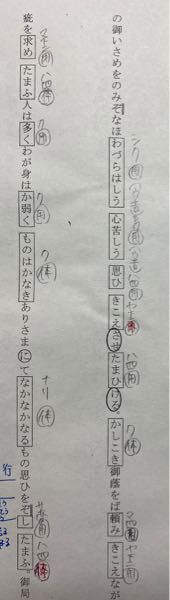 シク用 ハ四用 ハ四用 ク体 マ四用 ヤ下二用
の御いさめをのみぞなほわづらはしう心苦しう思ひきこえさせたまひける。かしこき御蔭をば頼みきこえなが
マ下二用 ハ四体 ク用 ク用 ク体 ナリ体 サ変用 ハ四
疵を求めたまふ人は多くわが身はか弱くものはかなきありさまにてなかなかなるもの思ひをぞしたまふ。御局
行